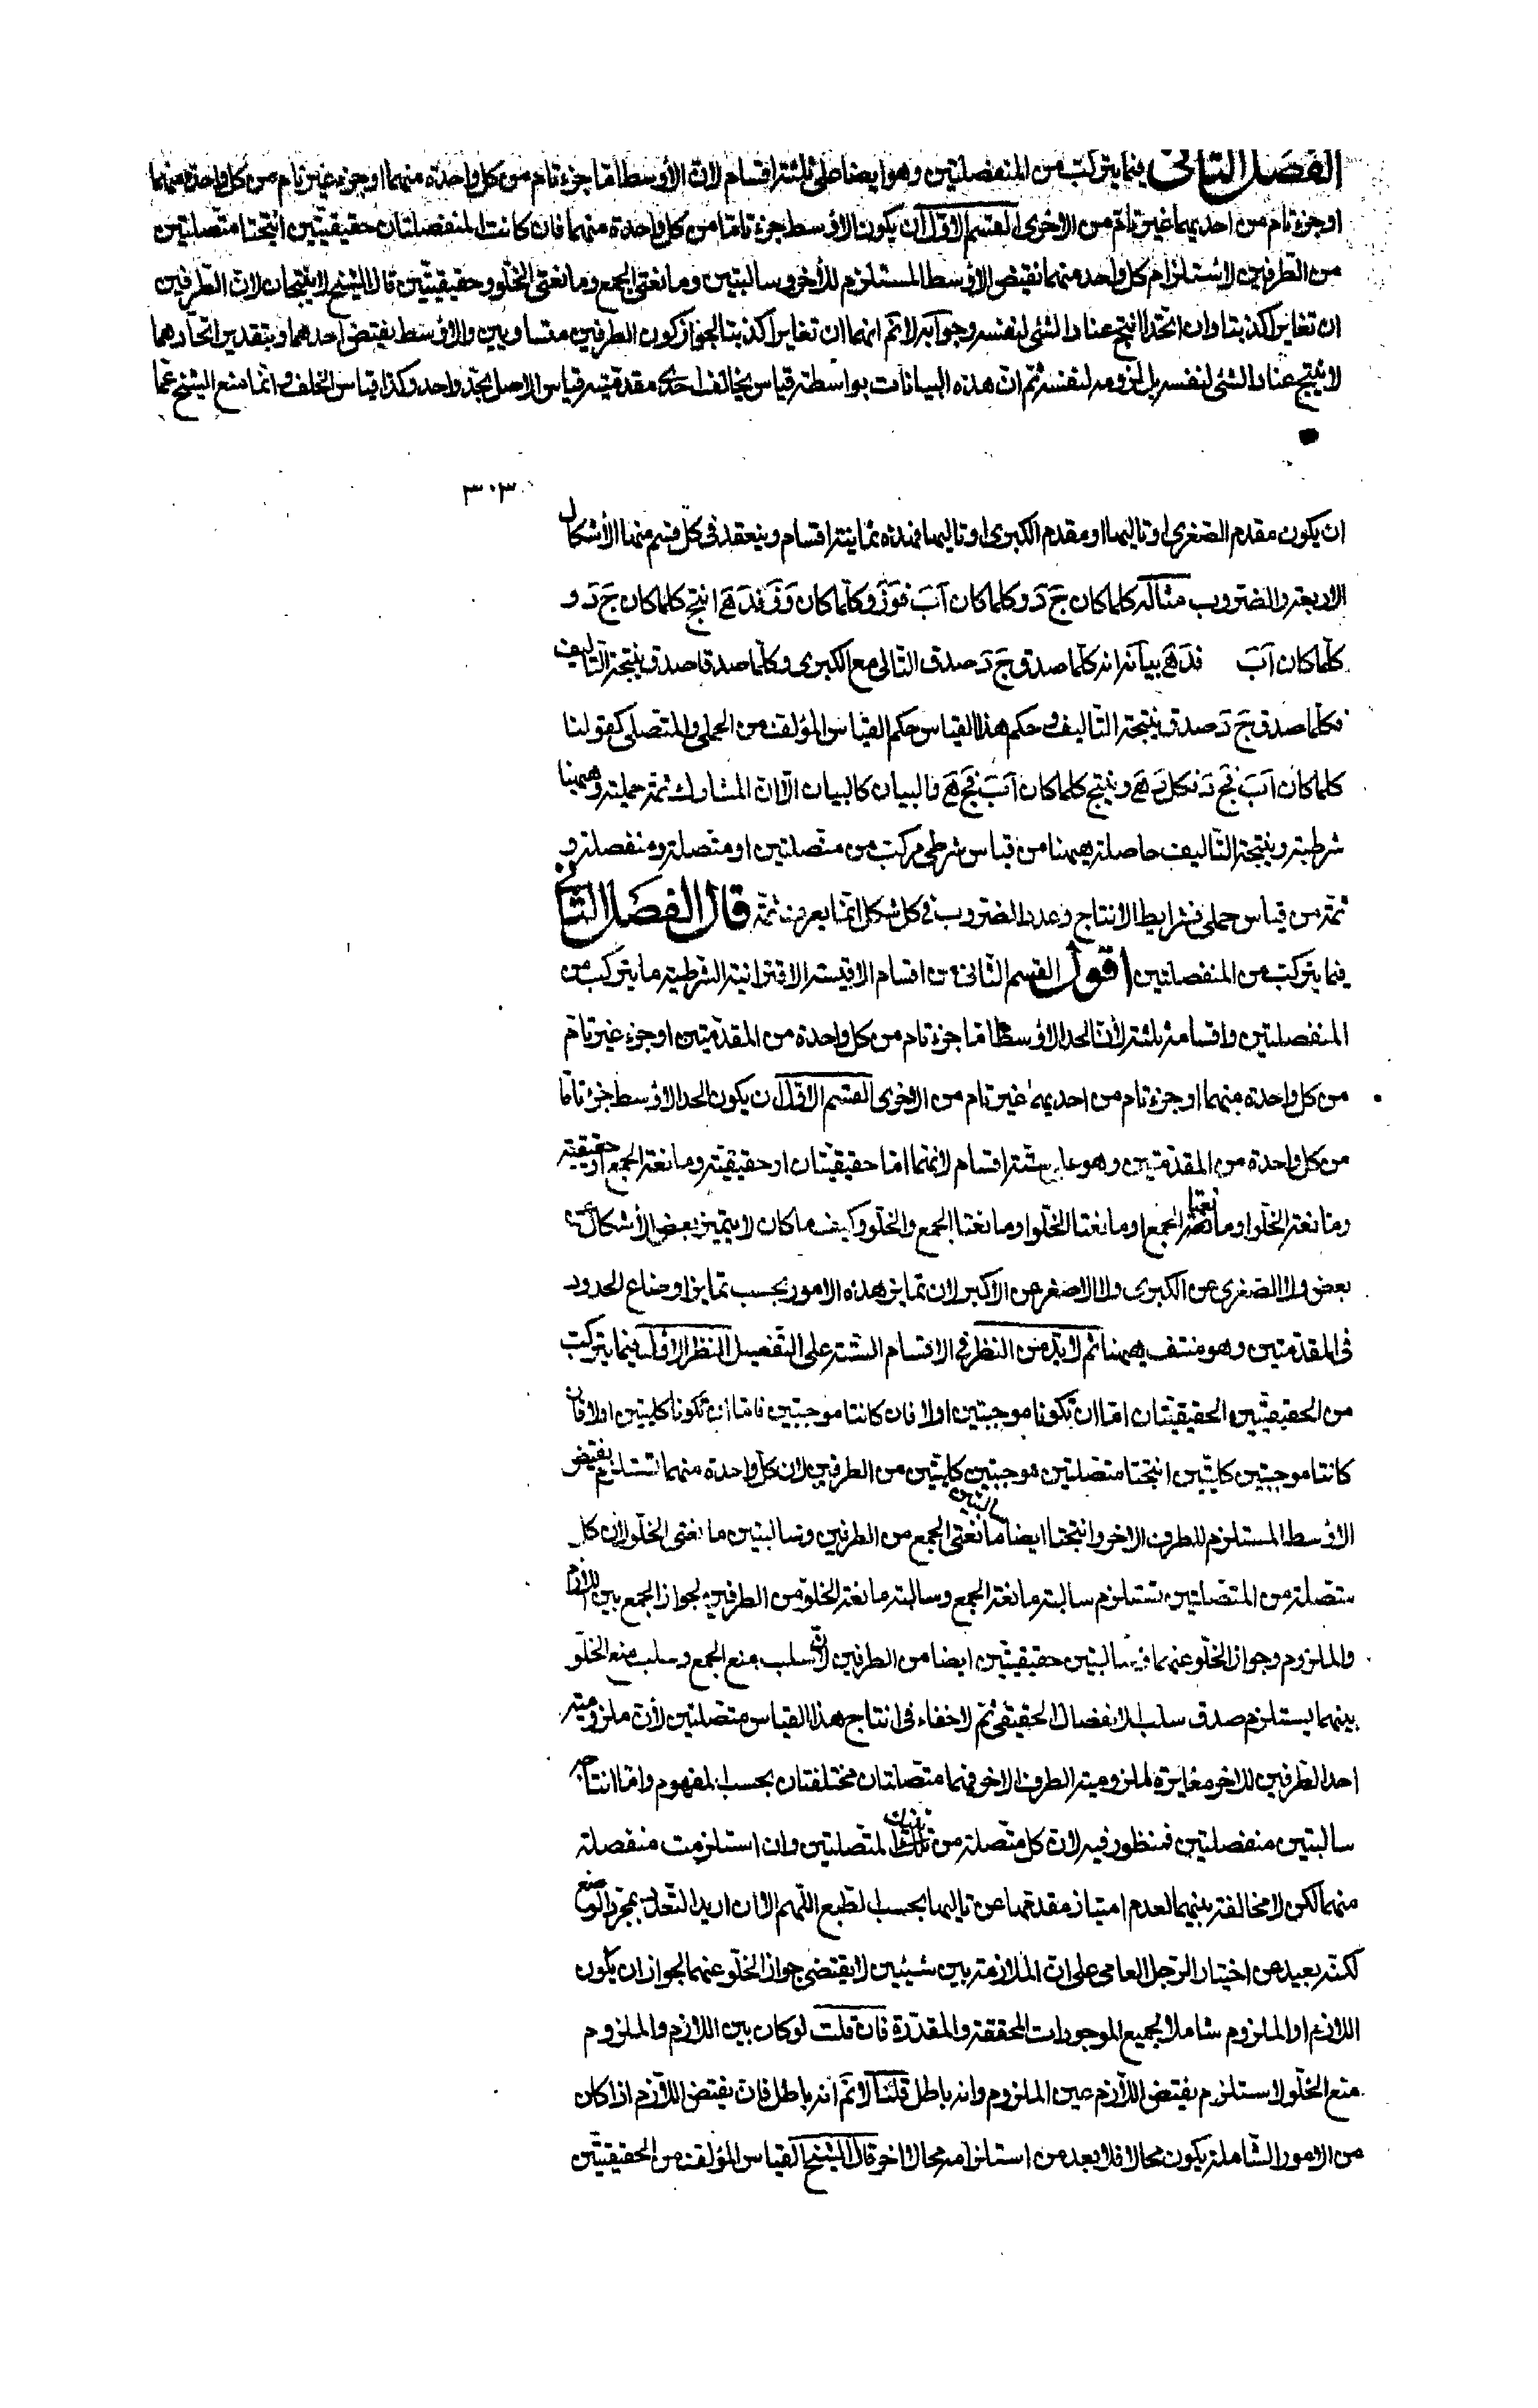 الفصل الثانى فيما يتركب من المنفصلتين وهو ايضا على ثلثة اقسام لان الأوسط اما جزء تام من كل واحدة منهما او جزء غير تام من كل واحدة منهما
او جزء تام من احديهما غير تام من الاخرى القسم الاوّل ان يكون الاوسط جزء تاما من كل واحدة منهما فان كانت المنفصلتان حقيقيّتين انتجتا متّصلتين
من الطّرفين لاستلزام كل واحد منهما نقيض الاوسط المستلزم للأخر وسالبتين ومانعتى الجمع ومانعتى الخلّو وحقيقيتّين قال الشيخ لا ينتجان لان الطّرفين
ان تغايرا كذبتا وان اتحّدا انتج عناد الشئ لنفسه وجوابه لا نمّ انهما ان تغايرا كذبتا لجواز كون الطرفين متساويين والاوسط نقيض احدهما وبتقدير اتّحادهما
لا ينتج عناد الشئ لنفسه بل لزومه لنفسه ثمّ انّ هذه البيانات بواسطة قياس يخالف احدى مقدمتيه قياس الاصل بحدّ واحد وكذا قياس الخلف وانّما منع الشيخ عمّا
٣٠٣
ان يكون مقدم الصّغرى او تاليها او مقدم الكبرى او تاليها فهذه ثمانية اقسام وينعقد فى كلّ قسم منها الأشكال
الاربعة والضروب مثاله كلما كان جَ دَ وكلما كان اَبَ فوَ زَ وكلّما كان وَ زَ فدَ هَ انتج كلما كان جَ دَ و
كلّما كان اَبَ فدَ هَ بيانه انه كلّما صدق جَ دَ صدق التّالى مع الكبرى وكلّما صدقا صدق نتيجة التّاليف
فكلّما صدق جَ دَ صدق نتيجة التّاليف وحكم هذا القياس حكم القياس المؤلف من الحملى والمتّصل كقولنا
كلما كان اَبَ فجَ دَ فكل دَ هَ وينتج كلما كان اَبَ فجَ هَ فالبيان كالبيان الّا انّ المشارك ثمّة حملية وهيهنا
شرطية ونتيجة التّاليف حاصلة هيهنا من قياس شرطى مركّب من متّصلتين او متّصلة ومنفصلة و
ثمّة من قياس حملى فشرايط الانتاج وعدد الضروب فى كل شكل انّما يعرف ثمّة قال الفصل الثانى
فيما يتركّب من المنفصلتين اقول القسم الثّانى من اقسام الاقيسة الاقترانية الشرطية ما يتركّب من
المنفصلتين واقسامه ثلثة لأنّ الحد الاوسط امّا جزء تام من كل واحدة من المقدّمتين او جزء غير تامّ
من كل واحدة منهما او جزء تام من احديهما غير تام من الاخرى القسم الاوّل ان يكون الحد الاوسط جزء تامّا
من كل واحدة من المقدّمتين وهو على ستّة اقسام لأنّهما امّا حقيقيّتان او حقيقيّة ومانعة الجمع او حقيقية
ومانعة الخلّو او مانعتا الجمع او مانعتا الخلّو او مانعتا الجمع والخلّو وكيف ما كان لا يتميّز بعض الأشكال عن
بعض ولا الصّغرى عن الكبرى ولا الاصغر عن الاكبر لان تمايز هذه الامور بحسب تمايز اوضاع الحدود
فى المقدّمتين وهو منتف هيهنا ثم لا بّد من النظر فى الاقسام السّتّة على التّفصيل النظر الاوّل فيما يتركب
من الحقيقيّتين الحقيقيّتان امّا ان تكونا موجبتين اولا فان كانتا موجبتين فامّا ان تكونا كليتين اولا فان
كانتا موجبتين كليّتين انتجتا متّصلتين موجبتين كليّتين من الطرفين لان كلّ واحدة منهما تستلزم نقيض
الاوسط المستلزم للطرف الاخر وانتجتا ايضا سالبتين مانعتى الجمع من الطرفين وسالبتين مانعتى الخلّو لانّ كل
متّصلة من المتّصلتين تستلزم سالبة مانعة الجمع وسالبة مانعة الخلّو من الطرفين لجواز الجمع بين اللازم
والملزوم وجواز الخلّو عنهما فسالبتين حقيقيتّين ايضا من الطرفين لانّ سلب منع الجمع وسلب منع الخلّو
بينهما يستلزم صدق سلب الانفصال الحقيقى ثمّ لا خفاء فى انتاج هذا القياس متصلتين لأنّ ملزومية
احد الطّرفين للاخر مغايرة لملزومية الطرف الاخر فهما متّصلتان مختلفتان بحسب المفهوم وامّا انتاجه
سالبتين منفصلتين فمنظور فيه لانّ كل متّصلة من تينك المتّصلتين وان استلزمت منفصلة
منهما لكن لا مخالفة بينهما لعدم امتياز مقدّمها عن تاليها بحسب الطّبع اللّهم الّا ان اريد التعدّد بمجرّد الوضع
لكنّه بعيد عن اختيار الرّجل العامى على انّ الملازمة بين شيئين لا يقتضى جواز الخلّو عنهما لجواز ان يكون
اللازم او الملزوم شاملا لجميع الموجودات المحققة والمقدّرة فان قلت لو كان بين اللازم والملزوم
منع الخلّو لاستلزم نقيض اللازم عين الملزوم وانه باطل قلنا لا نمّ انه باطل فانّ نقيض اللازم اذا كان
من الامور الشّاملة يكون محالا فلا بعد من استلزامه محالا اخر قال الشيخ القياس المؤلف من الحقيقيّتين